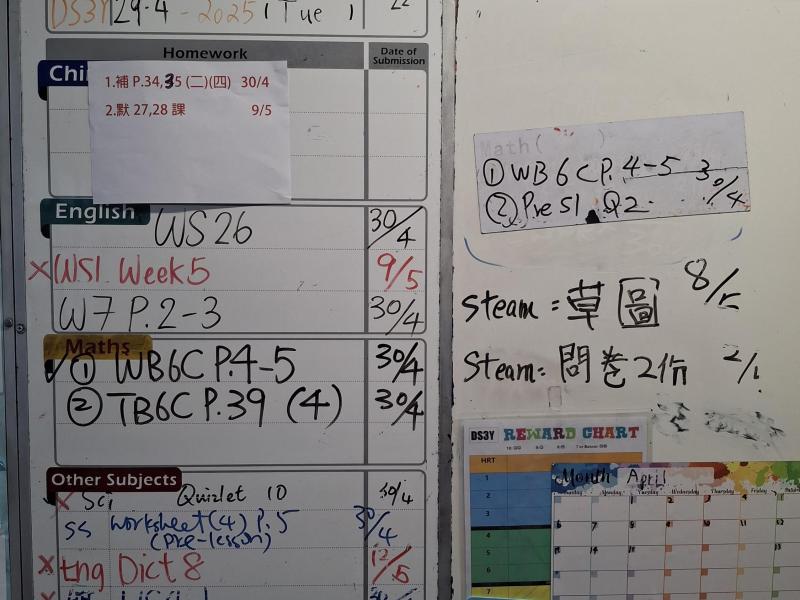 DS3Y 29-4-2025 Tue
Homework
Date of Submission
Chi
1.補 P.34,35 (二)(四) 30/4
2.默 27,28 課 9/5
English
WS 26 30/4
×WS1 Week5 9/5
W7 P.2-3 30/4
Maths
✓① WB6C P.4-5 30/4
② TB6C P.39 (4) 30/4
Other Subjects
×Sci Quizlet 10 30/4
SS Worksheet(4) P.5 30/4
(pre-lesson)
×Eng Dict 8 12/5
Math( )
① WB6C P.4-5 30/4
② Pre S1 Q2
Steam = 草圖 8/5
Steam = 問卷2份 2/
DS3Y REWARD CHART
HRT
1
2
3
4
5
6
7
Month April
Monday Tuesday Wednesday Thursday Friday